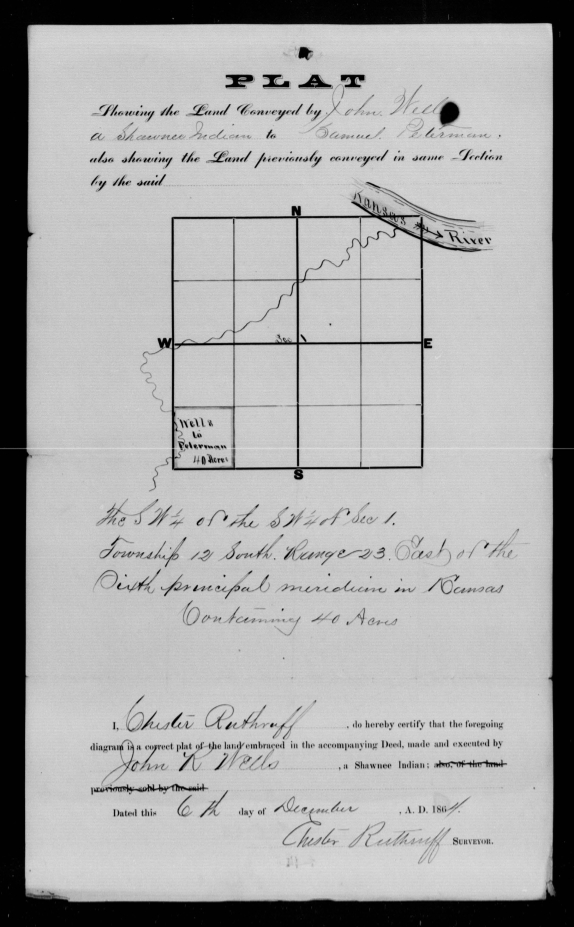 PLAT
Showing the Land Conveyed by John Wells
a Shawnee Indian to Samuel Peterman,
also showing the Land previously conveyed in same Section
by the said
Kansas
River
N
W
Sec 1
E
Wells
to
Peterman
40 Acres
S
The S W ¼ of the S W ¼ of Sec 1.
Township 12 South. Range 23. East of the
Sixth principal meridian in Kansas
Containing 40 Acres
I, Chester Ruthruff, do hereby certify that the foregoing
diagram is a correct plat of the land embraced in the accompanying Deed, made and executed by
John R Wells, a Shawnee Indian; also, of the land
previously sold by the said
Dated this 6th day of December, A. D. 1864.
Chester Ruthruff SURVEYOR.